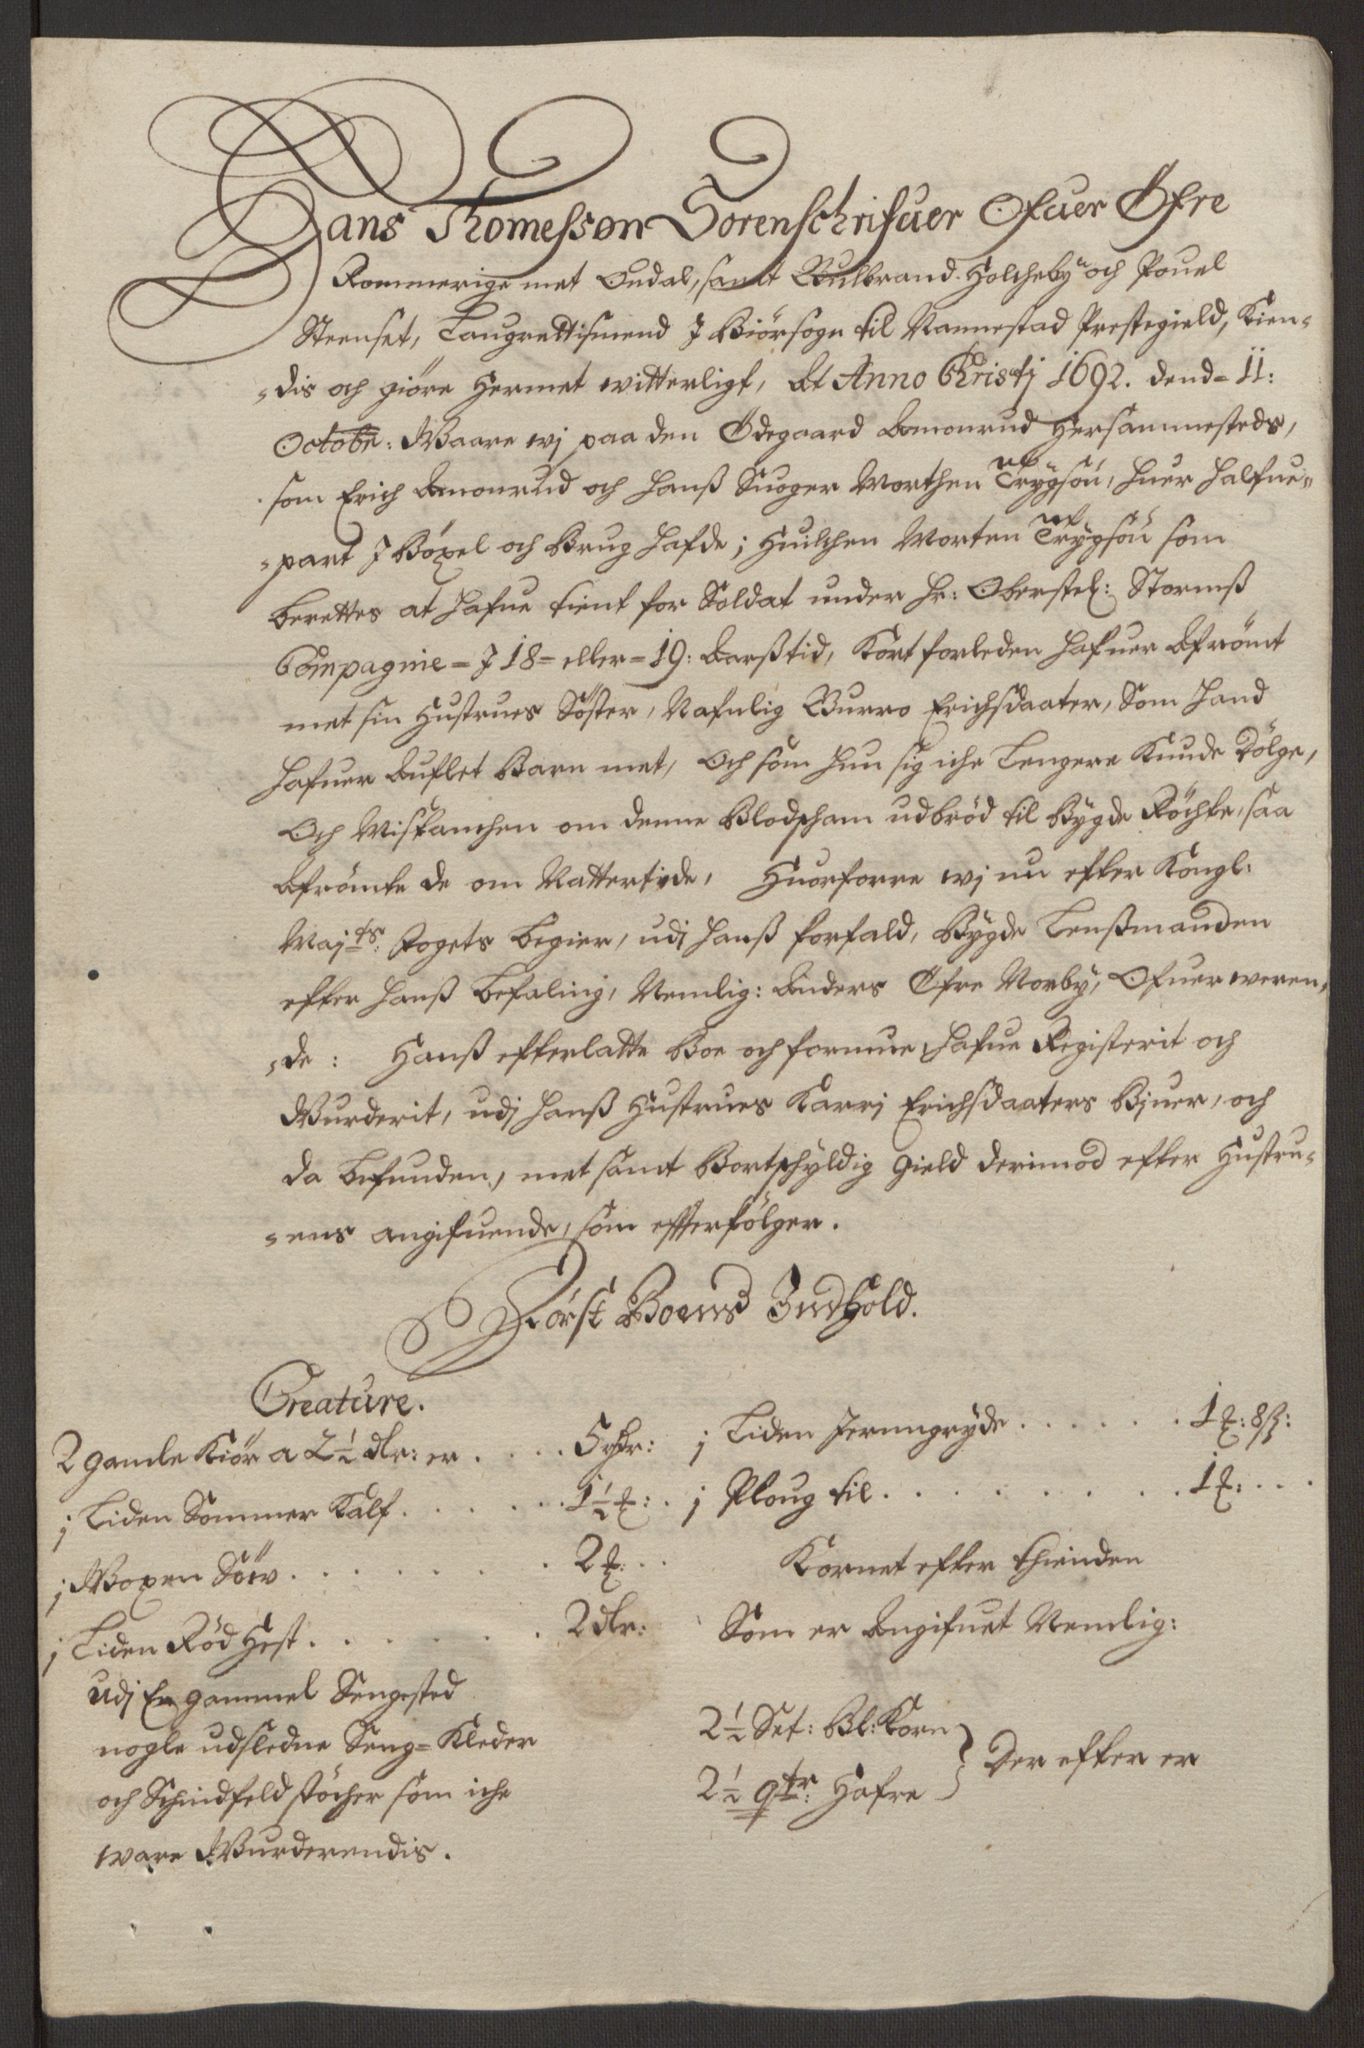 Hans Thomessøn Sorenschrifuer Ofuer Öfre
Rommerige met Oudal, samt Gulbrand Holcheby och Pouel
Steenset, Laugrettismend J Biörsogn til Nannestad Prestegield, Kien-
-dis och giöre Hermet witterligt, At Anno Christj 1692. dend= 11:
Octobr: Waare wj paa den Ödegaard Amonrud Hersammesteds,
som Erich Amonrud och Hanß Suoger Morthen Trÿgsön, Huer Halfue-
-part J Böxel och Brug Hafde; Huilchen Morten Trÿgsön som
berettes at Hafue tient for Soldat under Hr: Oberstel: Stormß
Compagnie= J 18= eller= 19: Aarßtid, Kort forleden Hafuer Afrömt
met sin Hustrues Söster, Nafnlig Gurro Erichsdaater, Som Hand
Hafuer Auflet Barn met, Och som Hun sig iche Lengere Kunde Dölge,
Och Mistanchen om denne Blodscham udbröd til Bÿgde Röchte, saa
Afrömte de om Nattertide, Huorforre wj nu efter Kongl:
Maj.ts: Fogets begier, udj Hanß forfald, Bÿgde Lenßmanden
efter Hanß befaling, Nemlig: Anders Öfre Norby, Ofuerweren-
-de: Hanß efterlatte Boe och formue Hafue Registerit och
Wurderit, udj Hanß Hustrues Karrj Erichsdaaters Bjuer, och
da befunden, met samt Bortschÿldig Gield derimod efter Hustru-
-ens angifuende, som effterfölger.
Först Boens Indhold.
Creature.
2 gamle Kiör a 2½ dlr: er . . . . 5 rdr:
j Liden Sommer Kalf . . . . . . 1½ ℔: .
j Woxen Söw . . . . . . 2 ℔: . .
j Liden Röd Hest . . . . . . 2 dlr:
Udj En gammel Sengested
nogle udsledne Seng= Kleder
och Schindfeldstöcher som iche
ware Wurderendis.
j Liden Jerngrÿde . . . . . . 1 ℔: 8 ß:
j Ploug til . . . . . . . . . 1 ℔: . . .
Kornet efter thienden
Som er Angifuet Nemlig:
2½ Set: Bl: Korn
2½ qtr: Hafre } Der efter er